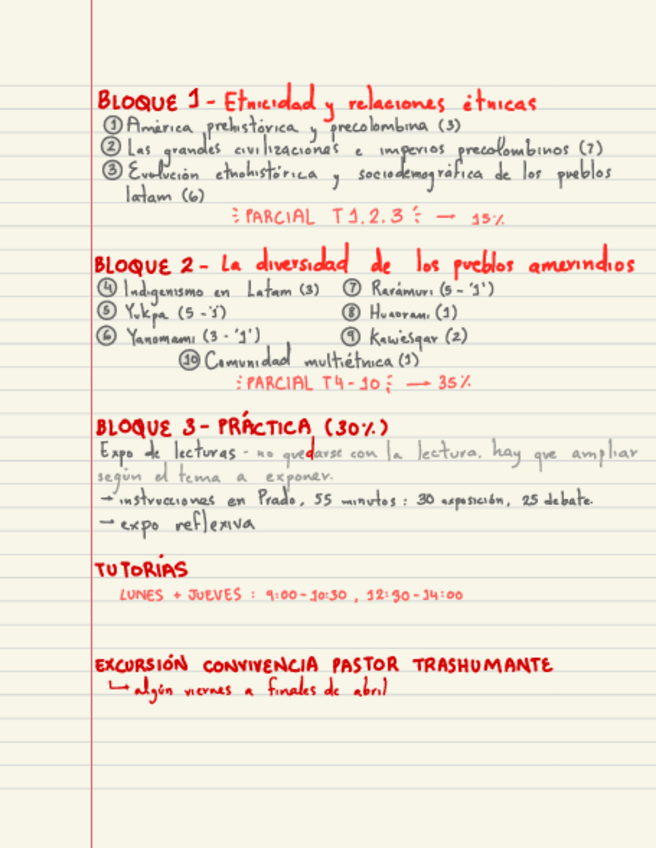 BLOQUE 1 - Etnicidad y relaciones étnicas
① América prehistórica y precolombina (3)
② Las grandes civilizaciones e imperios precolombinos (7)
③ Evolución etnohistórica y sociodemográfica de los pueblos
latam (6)
PARCIAL T1.2.3 — 15%
BLOQUE 2 - La diversidad de los pueblos amerindios
④ Indigenismo en Latam (3) ⑦ Rarámuri (5 - '1')
⑤ Yukpa (5 - 1) ⑧ Huaorani (1)
⑥ Yanomami (3 - '1') ⑨ Kawésqar (2)
⑩ Comunidad multiétnica (1)
PARCIAL T4-10 → 35%
BLOQUE 3 - PRÁCTICA (30%)
Expo de lecturas - no quedarse con la lectura, hay que ampliar
según el tema a exponer.
→ instrucciones en Prado, 55 minutos : 30 exposición, 25 debate.
→ expo reflexiva
TUTORÍAS
LUNES + JUEVES : 9:00-10:30 , 12:30-14:00
EXCURSIÓN CONVIVENCIA PASTOR TRASHUMANTE
↳ algún viernes a finales de abril